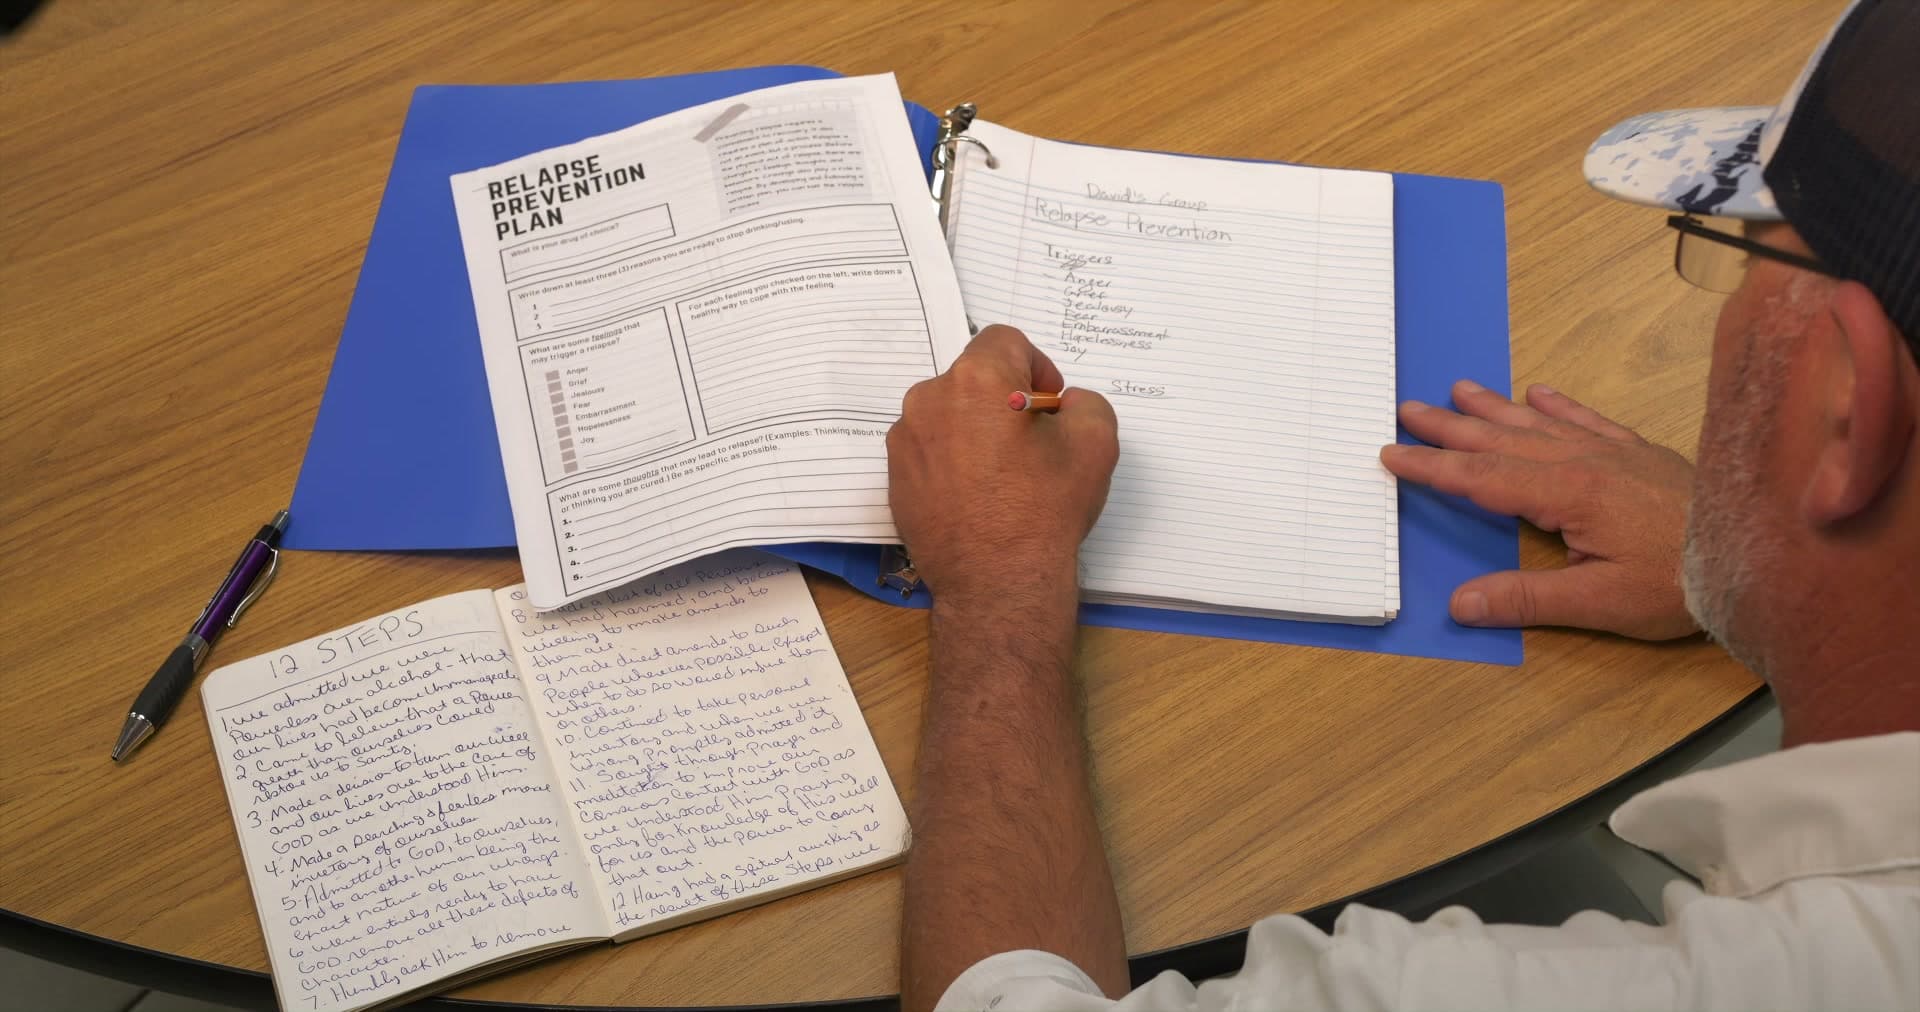 RELAPSE
PREVENTION
PLAN
Preventing relapse requires a
commitment to recovery. It also
requires a plan of action. Relapse is
not an event, but a process. Before
the physical act of relapse, there are
changes in feelings, thoughts and
behaviors. Cravings also play a role in
relapse. By developing and following a
written plan, you can halt the relapse
process.
What is your drug of choice?
Write down at least three (3) reasons you are ready to stop drinking/using.
1
2
3
What are some feelings that
may trigger a relapse?
Anger
Grief
Jealousy
Fear
Embarrassment
Hopelessness
Joy
For each feeling you checked on the left, write down a
healthy way to cope with the feeling.
What are some thoughts that may lead to relapse? (Examples: Thinking about the
or thinking you are cured.) Be as specific as possible.
1.
2.
3.
4.
5.
David's Group
Relapse Prevention
Triggers
- Anger
- Grief
- Jealousy
- Fear
- Embarrassment
- Hopelessness
- Joy
Stress
12 STEPS
1 We admitted we were
Powerless over alcohol - that
our lives had become Unmanageable
2 Came to believe that a Power
greath than ourselves could
restore us to Sanity.
3. Made a decision to turn our will
and our lives over to the care of
GOD as we understood Him.
4. Made a searching & fearless moral
inventory of ourselves
5. Admitted to GOD, to ourselves,
and to another human being the
exact nature of our wrongs.
6 were entirely ready to have
GOD remove all these defects of
Character.
7. Humbly ask Him to remove
8. Made a list of all Persons
we had harmed, and became
willing to make amends to
them all.
9 Made direct amends to Such
People wherever possible, except
when to do so would injure them
or others.
10. Continued to take personal
inventory and when we were
wrong Promptly admitted it
11. Sought through Prayer and
meditation to improve our
Conscious Contact with GOD as
we understood Him Praying
only for Knowledge of His will
for us and the power to Carry
that out.
12 Having had a Spiritual awaking as
the result of these Steps, we